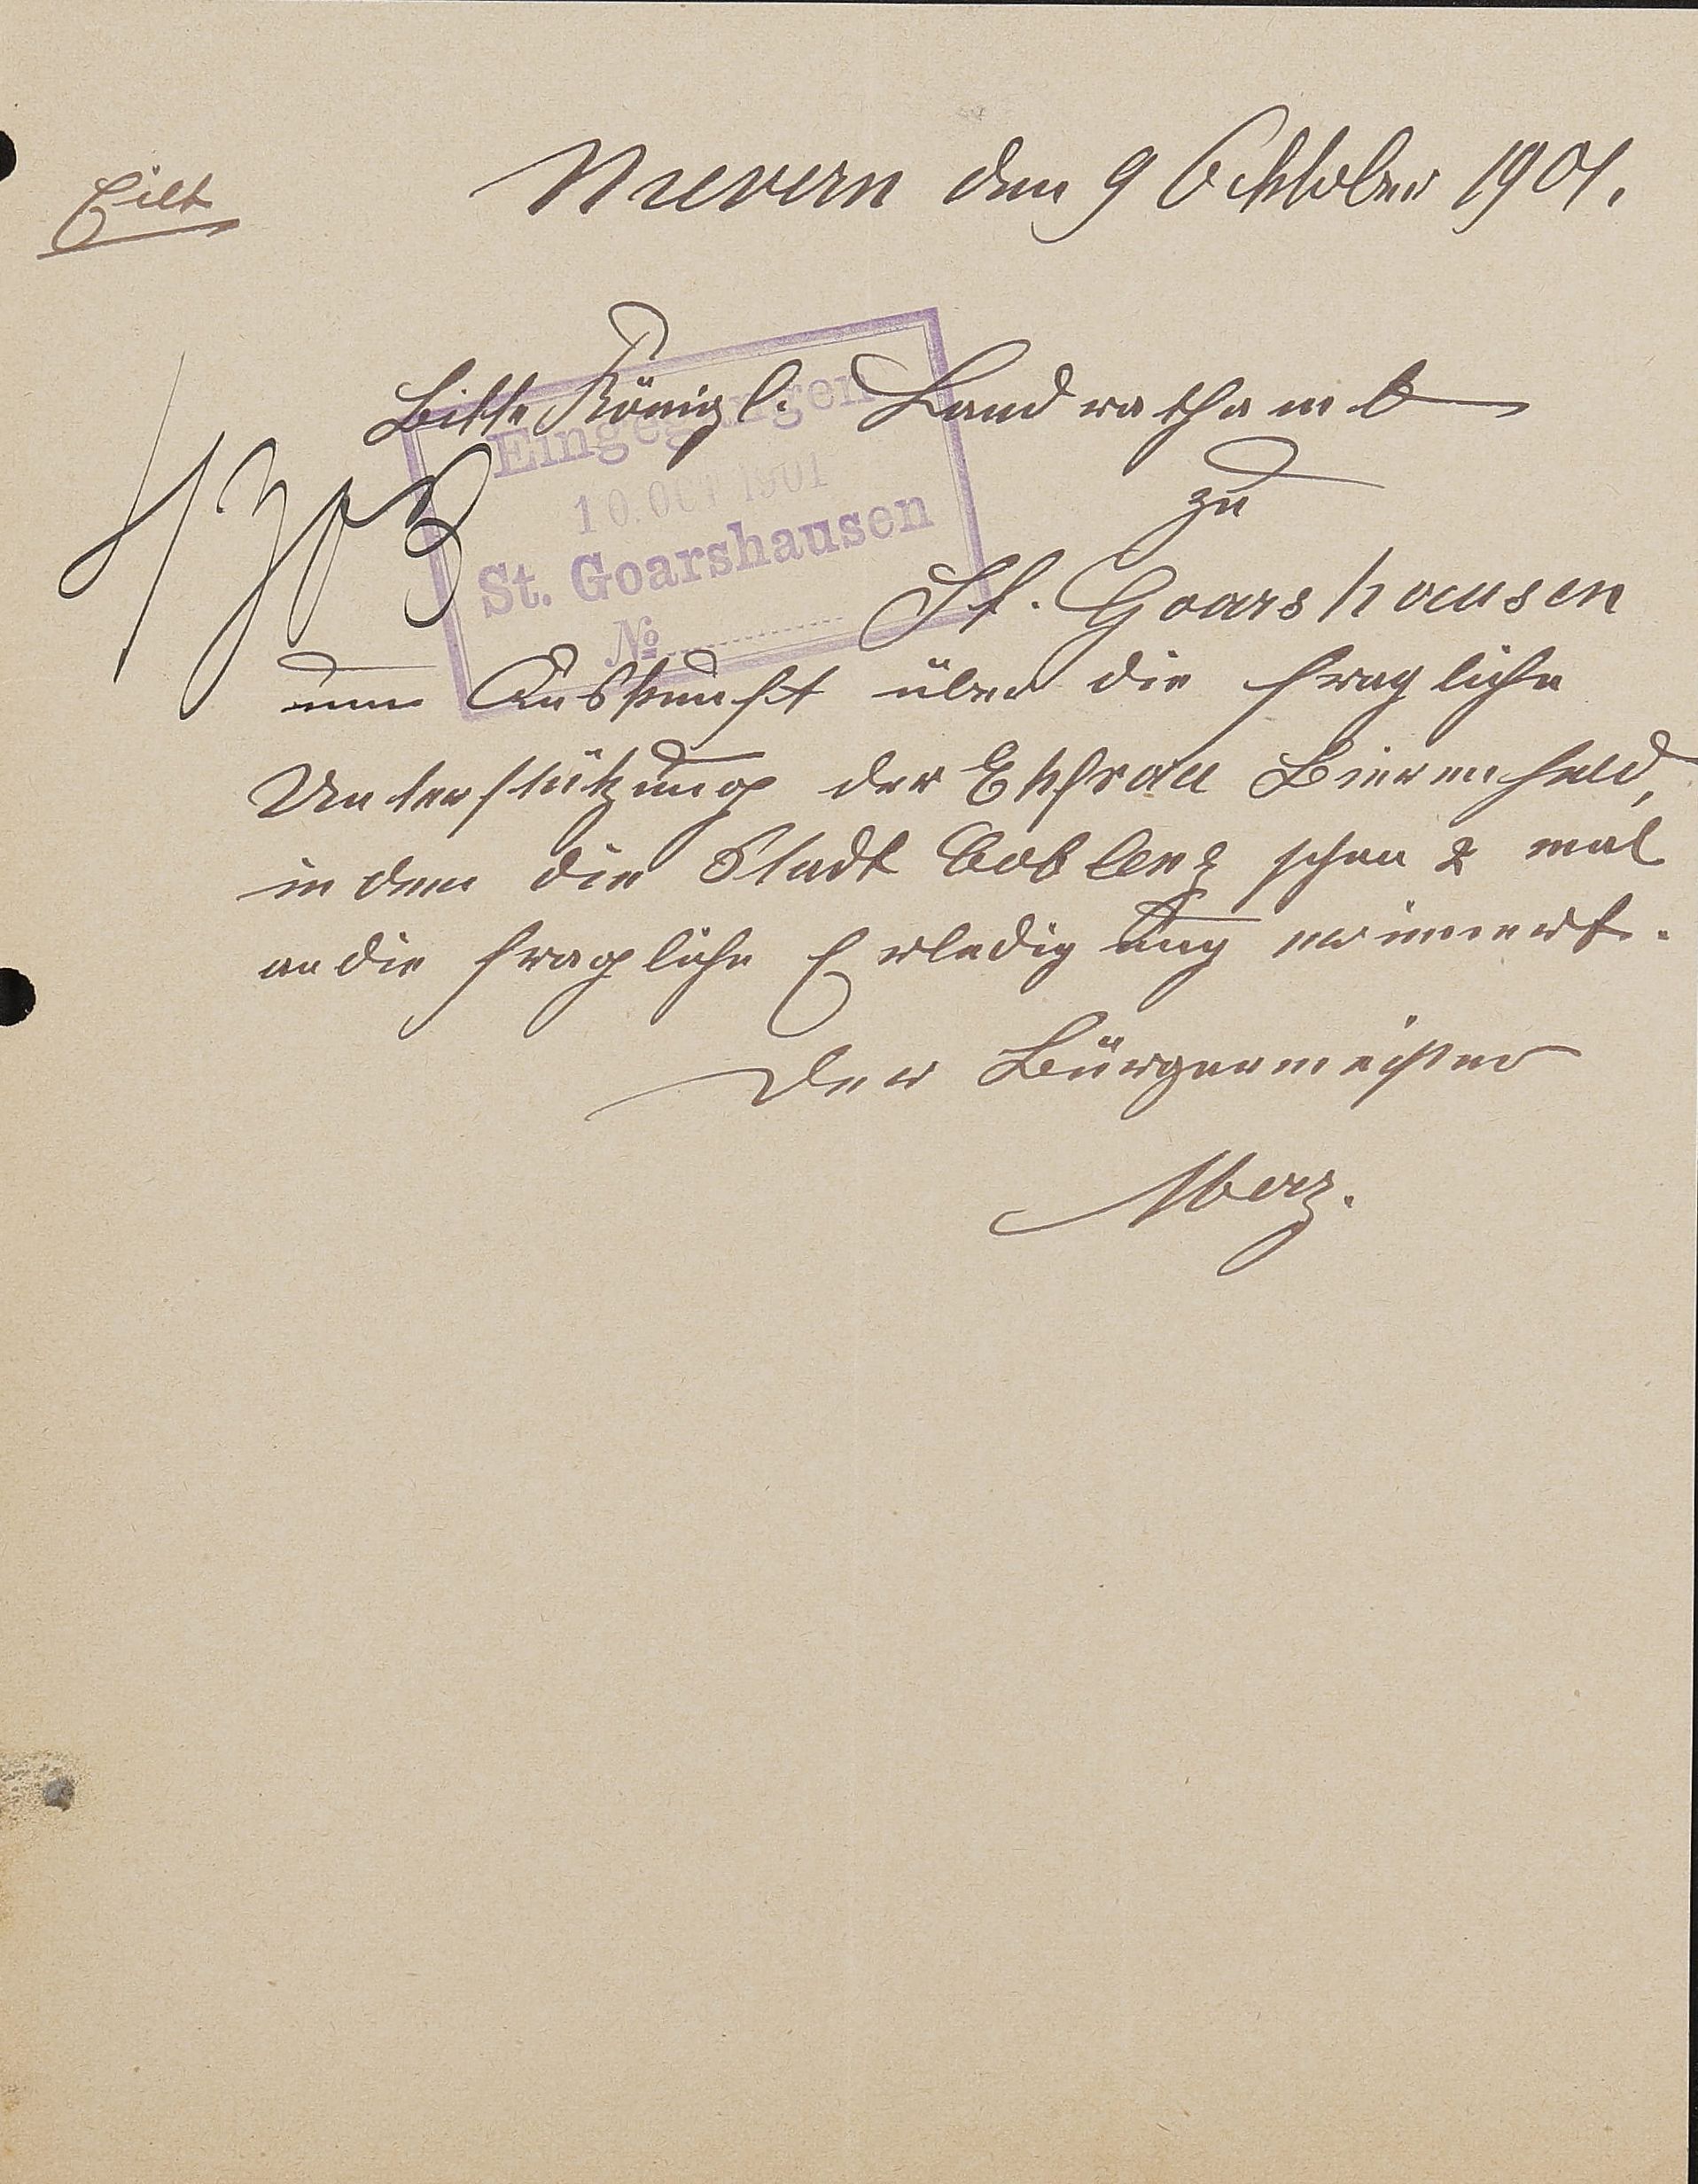 Eilt
Nievern den 9 Oktober 1901.
Bitte Königl. Landrathamt
Eingegangen
10. OCT 1901
St. Goarshausen
№
4703
zu
St. Goarshausen
um Auskunft über die fragliche
Unterstützung der Ehefrau Bierenfeld,
in dem die Stadt Coblenz schon 2 mal
an die fragliche Erledigung erinnert.
Der Bürgermeister